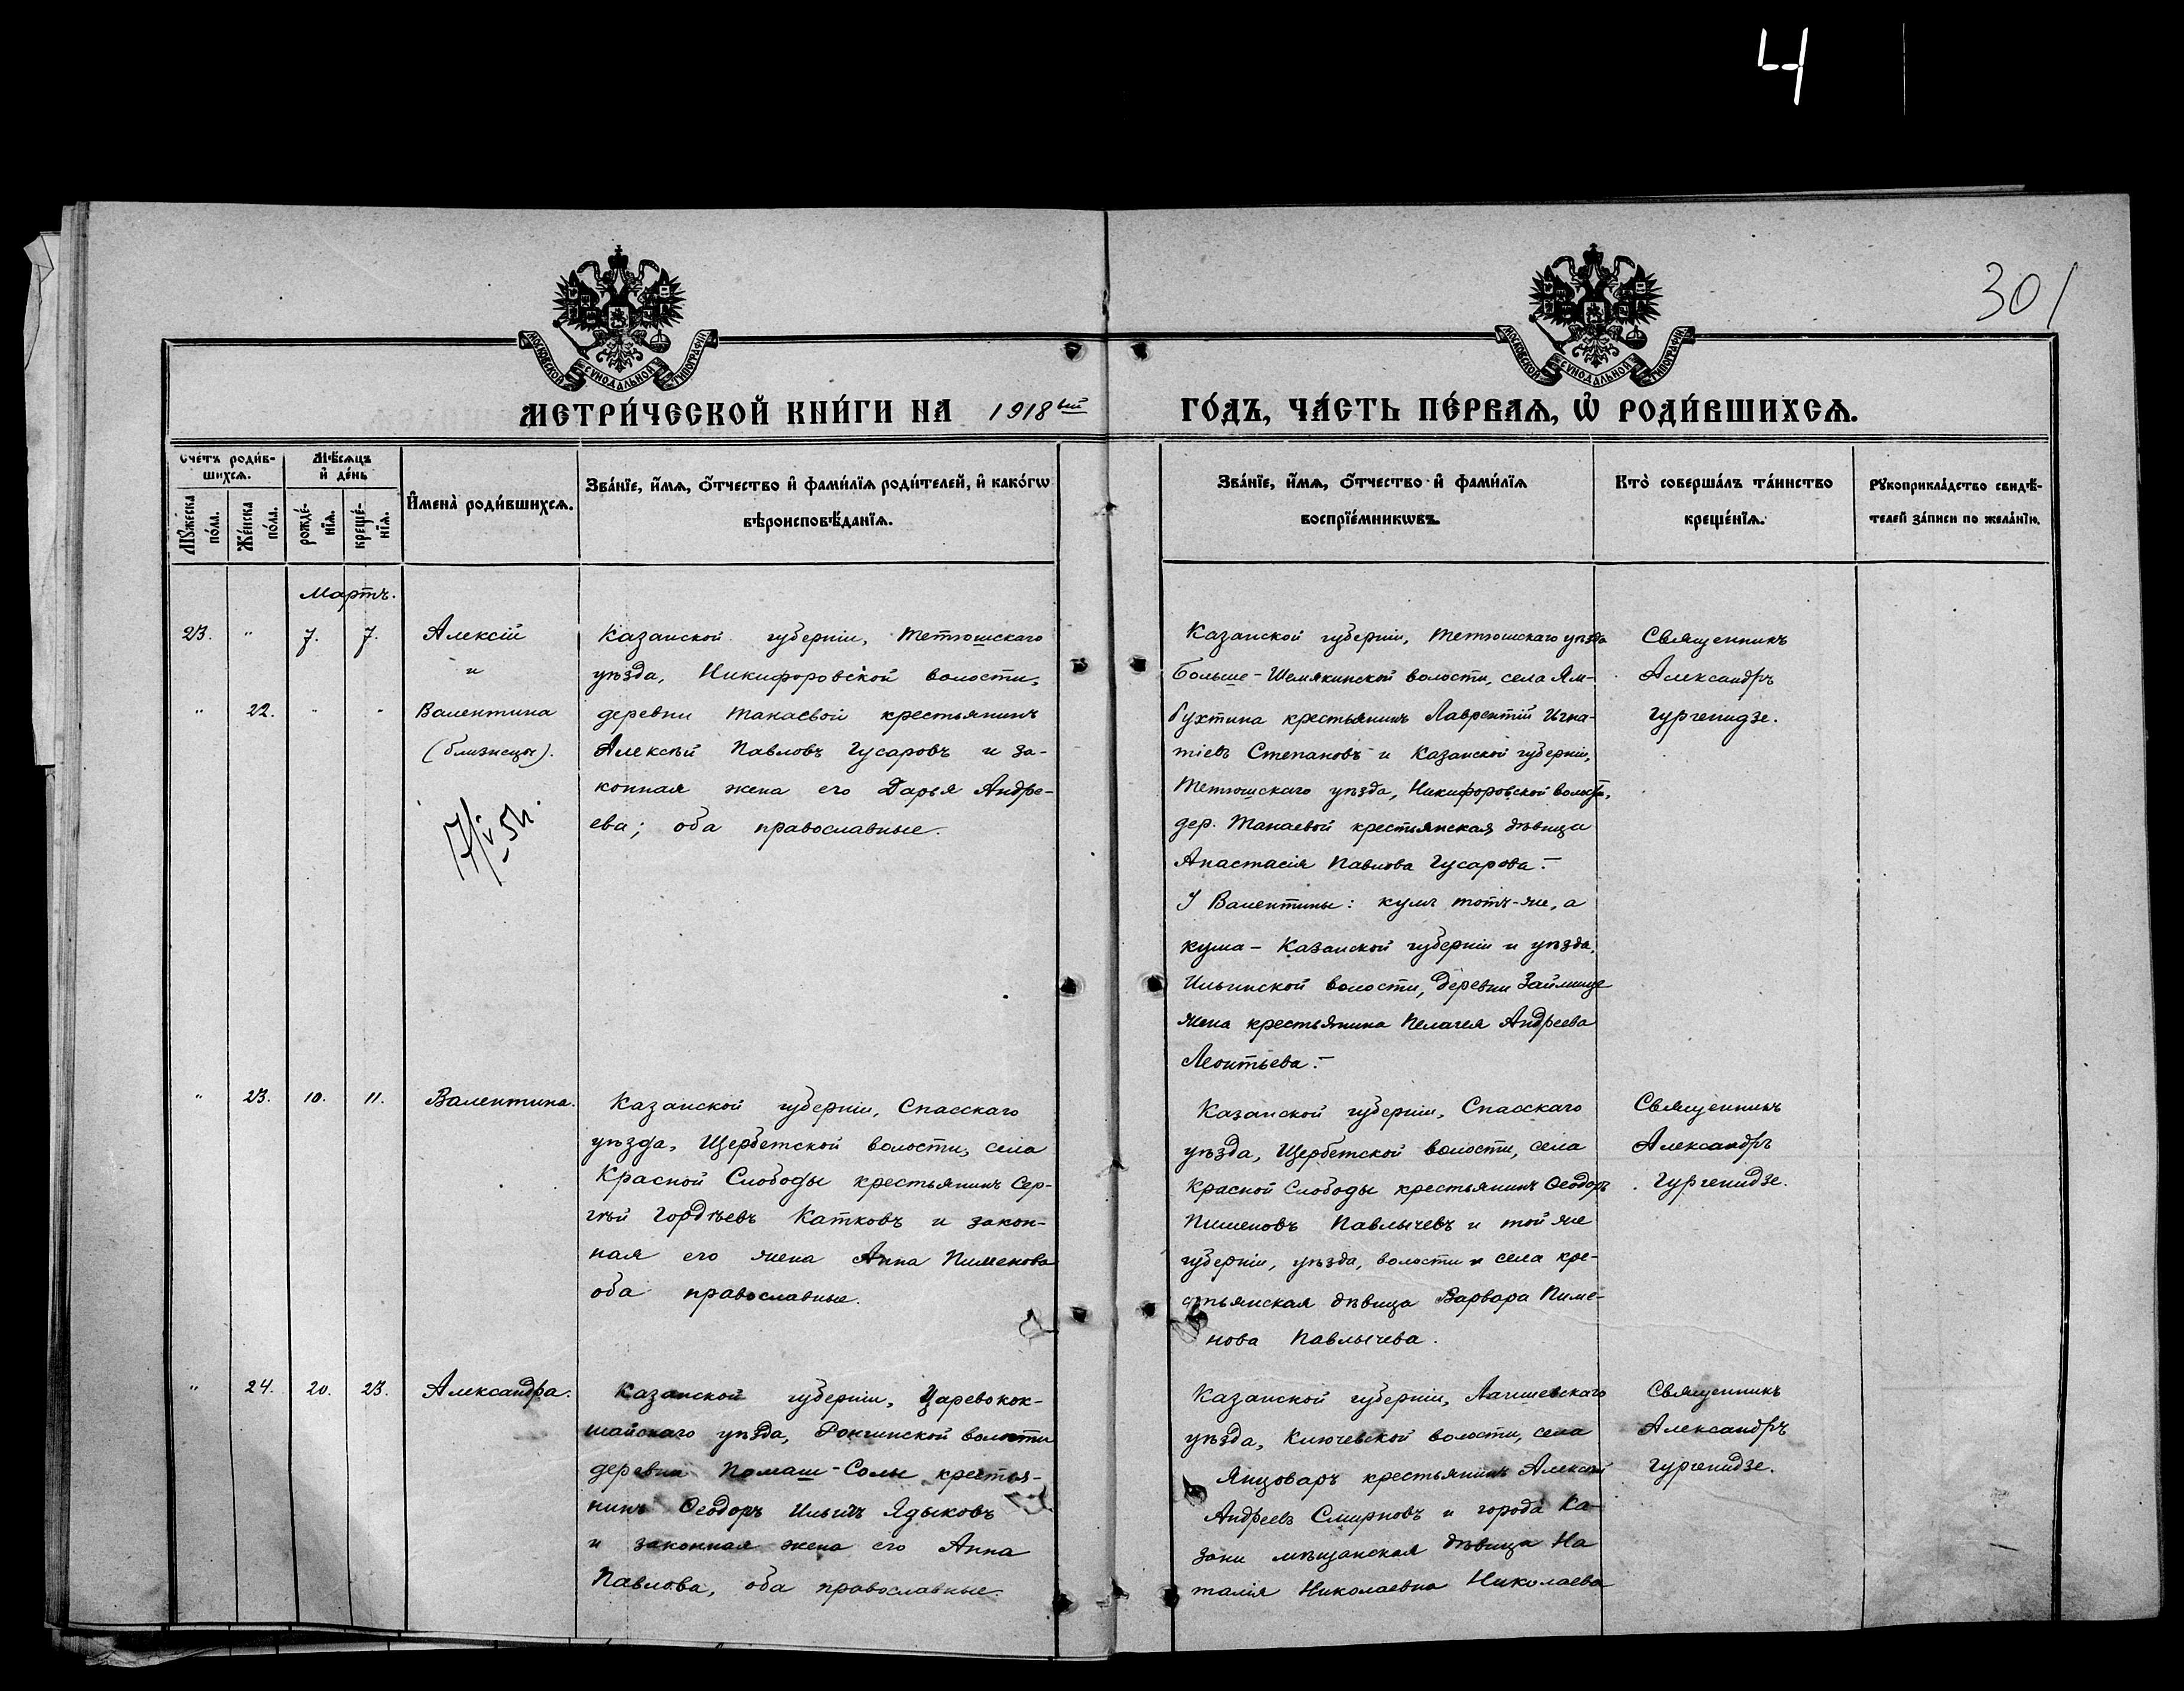 4
301
МОСКОВСКОЙ СѴНОДАЛЬНОЙ ТИПОГРАФІИ
МОСКОВСКОЙ СѴНОДАЛЬНОЙ ТИПОГРАФІИ
МЕТРИ́ЧЕСКОЙ КНИ́ГИ НА 1918ый ГО́ДЪ, ЧА́СТЬ ПЕ́РВАѦ, Ѽ РОДИ́ВШИХСѦ.
Сче́тъ роди́в-
шихсѧ.
Мꙋ́жеска по́ла.
Же́нска по́ла.
Мѣ́сѧцъ
и҆ де́нь
рожде́-
нїѧ.
креще́-
нїѧ.
И҆мена̀ роди́вшихсѧ.
Зва́нїе, и҆́мѧ, ѻ҆́тчество и҆ фами́лїѧ роди́телей, и҆ како́гѡ
вѣроисповѣ́данїѧ.
Зва́нїе, и҆́мѧ, ѻ҆́тчество и҆ фами́лїѧ
воспрїе́мникѡвъ.
Кто̀ соверша́лъ та́инство
креще́нїѧ.
Рꙋкоприкла́дство свидѣ́-
телей за́писи по жела́нїю.
Мартъ.
23. " 7. 7. Алексій
и
" 22. " " Валентина
(близнецы).
17/V 54.
Казанской губерніи, Тетюшскаго
уѣзда, Никифоровской волости,
деревни Танаевой крестьянинъ
Алексѣй Павловъ Гусаровъ и за-
конная жена его Дарья Андре-
ева; оба православные.
Казанской губерніи, Тетюшскаго уѣзда
Больше-Шемякинской волости, села Ям-
бухтина крестьянинъ Лаврентій Игна-
тіевъ Степановъ и Казанской губерніи,
Тетюшскаго уѣзда, Никифоровской волости,
дер. Танаевой крестьянская дѣвица
Анастасія Павлова Гусарова.–
У Валентины: кумъ тотъ-же, а
кума – Казанской губерніи и уѣзда,
Ильинской волости, деревни Займище
жена крестьянина Пелагея Андреева
Леонтьева.–
Священникъ
Александръ
Гургенидзе.
" 23. 10. 11. Валентина.
Казанской губерніи, Спасскаго
уѣзда, Щербетской волости, села
Красной Слободы крестьянинъ Сер-
гѣй Гордѣевъ Катковъ и закон-
ная его жена Анна Пименова
оба православные.
Казанской губерніи, Спасскаго
уѣзда, Щербетской волости, села
Красной Слободы крестьянинъ Ѳеодоръ
Пименовъ Павлычевъ и той же
губерніи, уѣзда, волости и села кре-
стьянская дѣвица Варвара Пиме-
нова Павлычева.
Священникъ
Александръ
Гургенидзе.
" 24. 20. 23. Александра.
Казанской губерніи, Царевокок-
шайскаго уѣзда, Ронгинской волости
деревни Помаш-Солы крестья-
нинъ Ѳеодоръ Ильичъ Ядыковъ
и законная жена его Анна
Павлова, оба православные.
Казанской губерніи, Лаишевскаго
уѣзда, Ключевской волости, села
Янцоваръ крестьянинъ Алексѣй
Андреевъ Смирновъ и города Ка-
зани мѣщанская дѣвица На
талія Николаевна Николаева
Священникъ
Александръ
Гургенидзе.